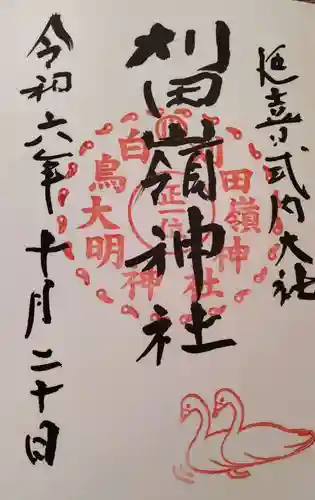 延喜式内大社
刈田嶺神社
刈田嶺神社
正一位
白鳥大明神
令和六年十月二十日